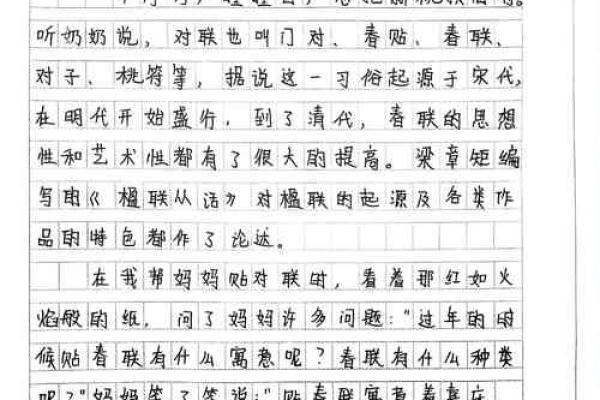 听奶奶说，对联也叫门对、春贴、春联、
对子、桃符等，据说这一习俗起源于宋代，
在明代开始盛行，到了清代，春联的思想
性和艺术性都有了很大的提高。梁章短编
写的《楹联从话》对楹联的起源及各类作
品的特色都作了论述。
在我帮妈妈贴对联时，看着那红如火
焰般的纸，问了妈妈许多问题："过年的时
候贴春联有什么寓意呢？春联有什么种类
呢？"妈妈笑了笑说："贴春联寓意着喜庆